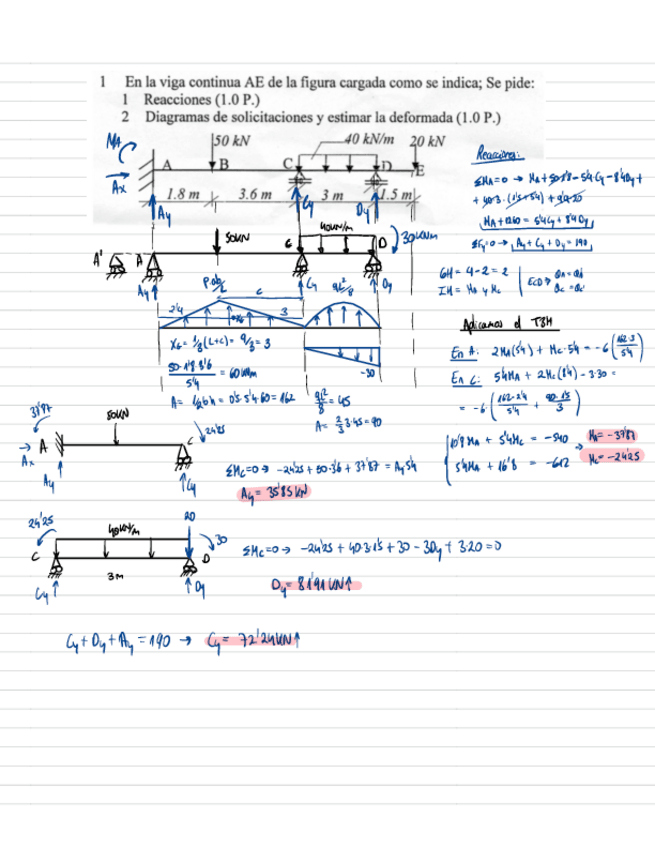 1 En la viga continua AE de la figura cargada como se indica; Se pide:
1 Reacciones (1.0 P.)
2 Diagramas de solicitaciones y estimar la deformada (1.0 P.)
MA
50 kN
40 kN/m
20 kN
A
B
C
D
E
Ax
1.8 m
3.6 m
3 m
1.5 m
Ay
Cy
Dy
Reacciones:
ΣMA=0 → MA + 50·1'8 - 5'4Cy - 8'4Dy +
+ 40·3·(1'5+5'4) + 9'9·20
MA + 1260 = 5'4Cy + 8'4Dy
ΣFy=0 → Ay + Cy + Dy = 190
50KN
40KN/m
A'
A
C
D
30KNm
Ay
Cy
qL²/8
Dy
GH = 4-2 = 2
IH = MA y MC
P·ab/L
c
2'4
3
XG = 1/3(L+c) = 9/3 = 3
50·1'8·3'6/5'4 = 60 KNm
A = 1/2 b·h = 0'5·5'4·60 = 162
qL²/8 = 45
A = 2/3·3·45 = 90
-30
Aplicamos el T3M
En A: 2MA(5'4) + MC·5'4 = -6(162·3/5'4)
En C: 5'4MA + 2MC(8'4) - 3·30 =
= -6·(162·2'4/5'4 + 90·1'5/3)
10'8 MA + 5'4MC = -540
5'4MA + 16'8 = -612
MA = -37'87
MC = -24'25
37'87
50KN
24'25
A
Ax
C
Ay
Cy
ΣMC=0 → -24'25 + 50·3'6 + 37'87 = Ay 5'4
Ay = 35'85 KN
24'25
40KN/m
20
30
C
D
3m
Cy
Dy
ΣMC=0 → -24'25 + 40·3·1'5 + 30 - 3Dy + 3·20 = 0
Dy = 81'91 KN↑
Cy + Dy + Ay = 190 → Cy = 72'24KN↑